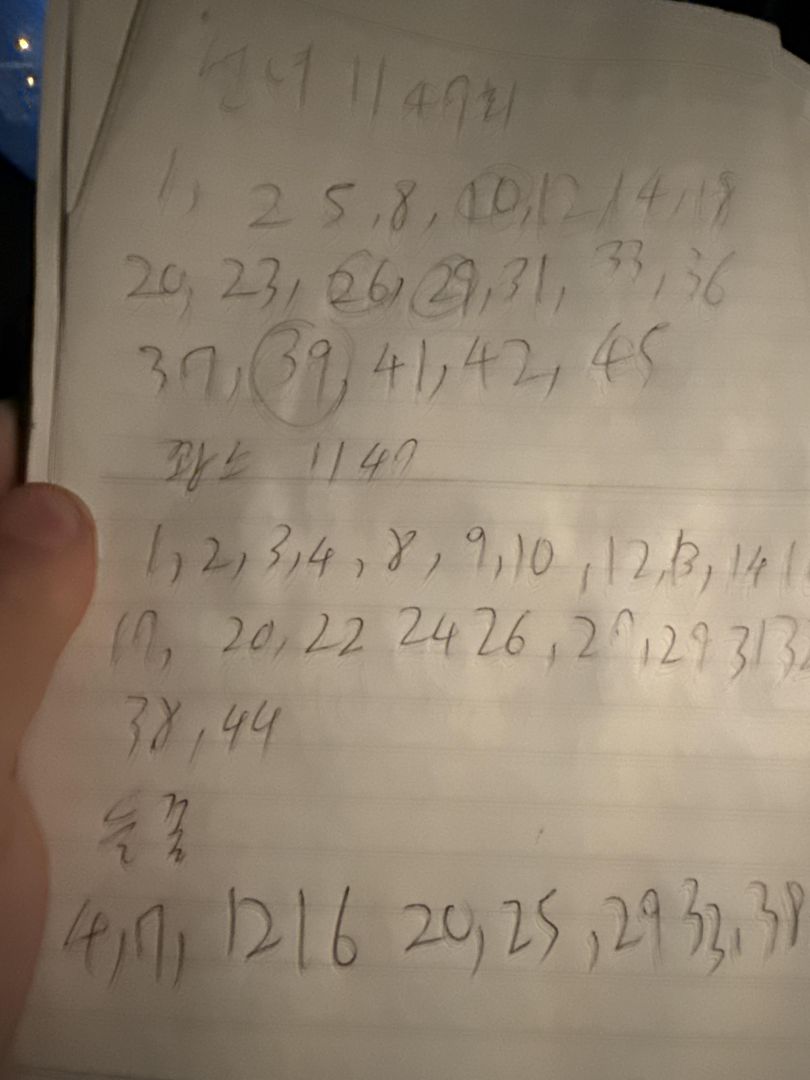 선녀 1147회
1, 2 5, 8, 10, 12, 14, 18
20, 23, 26, 29, 31, 33, 36
37, 39, 41, 42, 45
1147
1, 2, 3, 4, 8, 9, 10, 12, 13, 14
17, 20, 22 24 26, 27, 29 31 32
38, 44
들꽃
4, 7, 12 16 20, 25, 29 33, 38